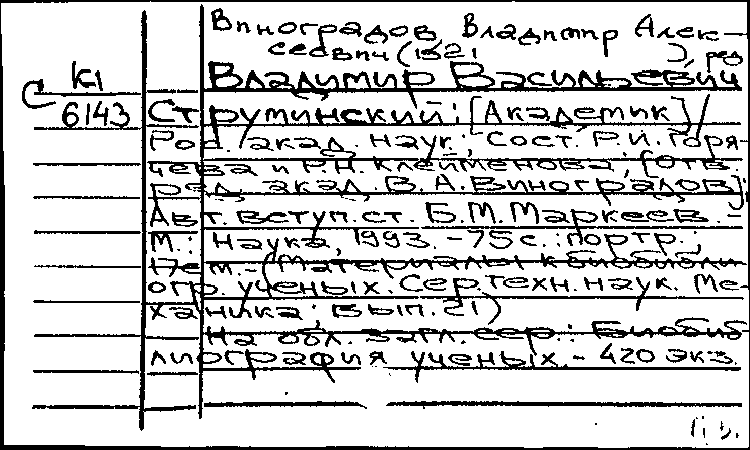 Виноградов Владимир Алек-
сеевич (1921 ), ред.
С К1 Владимир Васильевич
6143 Струминский: [Академик] /
Рос. акад. наук; Сост. Р.И. Горя-
чева и Р.Н. Клейменова; [Отв.
ред. акад. В.А. Виноградов];
Авт. вступ. ст. Б.М. Маркеев. -
М.: Наука, 1993. - 75 с.: портр.;
(Материалы к биобибли-
огр. ученых. Сер. техн. наук. Ме-
ханика; Вып. 21)
На обл. загл. сер.: Биобиб-
лиография ученых. - 420 экз.